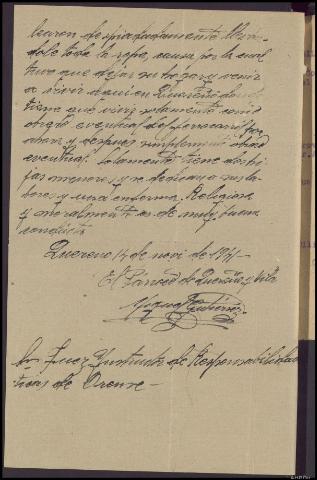 despiadadamente
dole toda la ropa, causa por la cual
tuvo que dejar su hogar y venir
a vivir aquí en Quereño donde
tiene que vivir solamente como
eventual del ferrocarril
y después simplemente obrero
eventual. Solamente tiene dos hi-
jas menores, y se dedican a sus la-
bores y una enferma. Religiosa
y moralmente es de muy buena
conducta
Quereño 14 de novi de 1941-
El Párroco de Quereño y
Gutiérrez
Sr. Juez Instructor de Responsabilidades
de Orense -